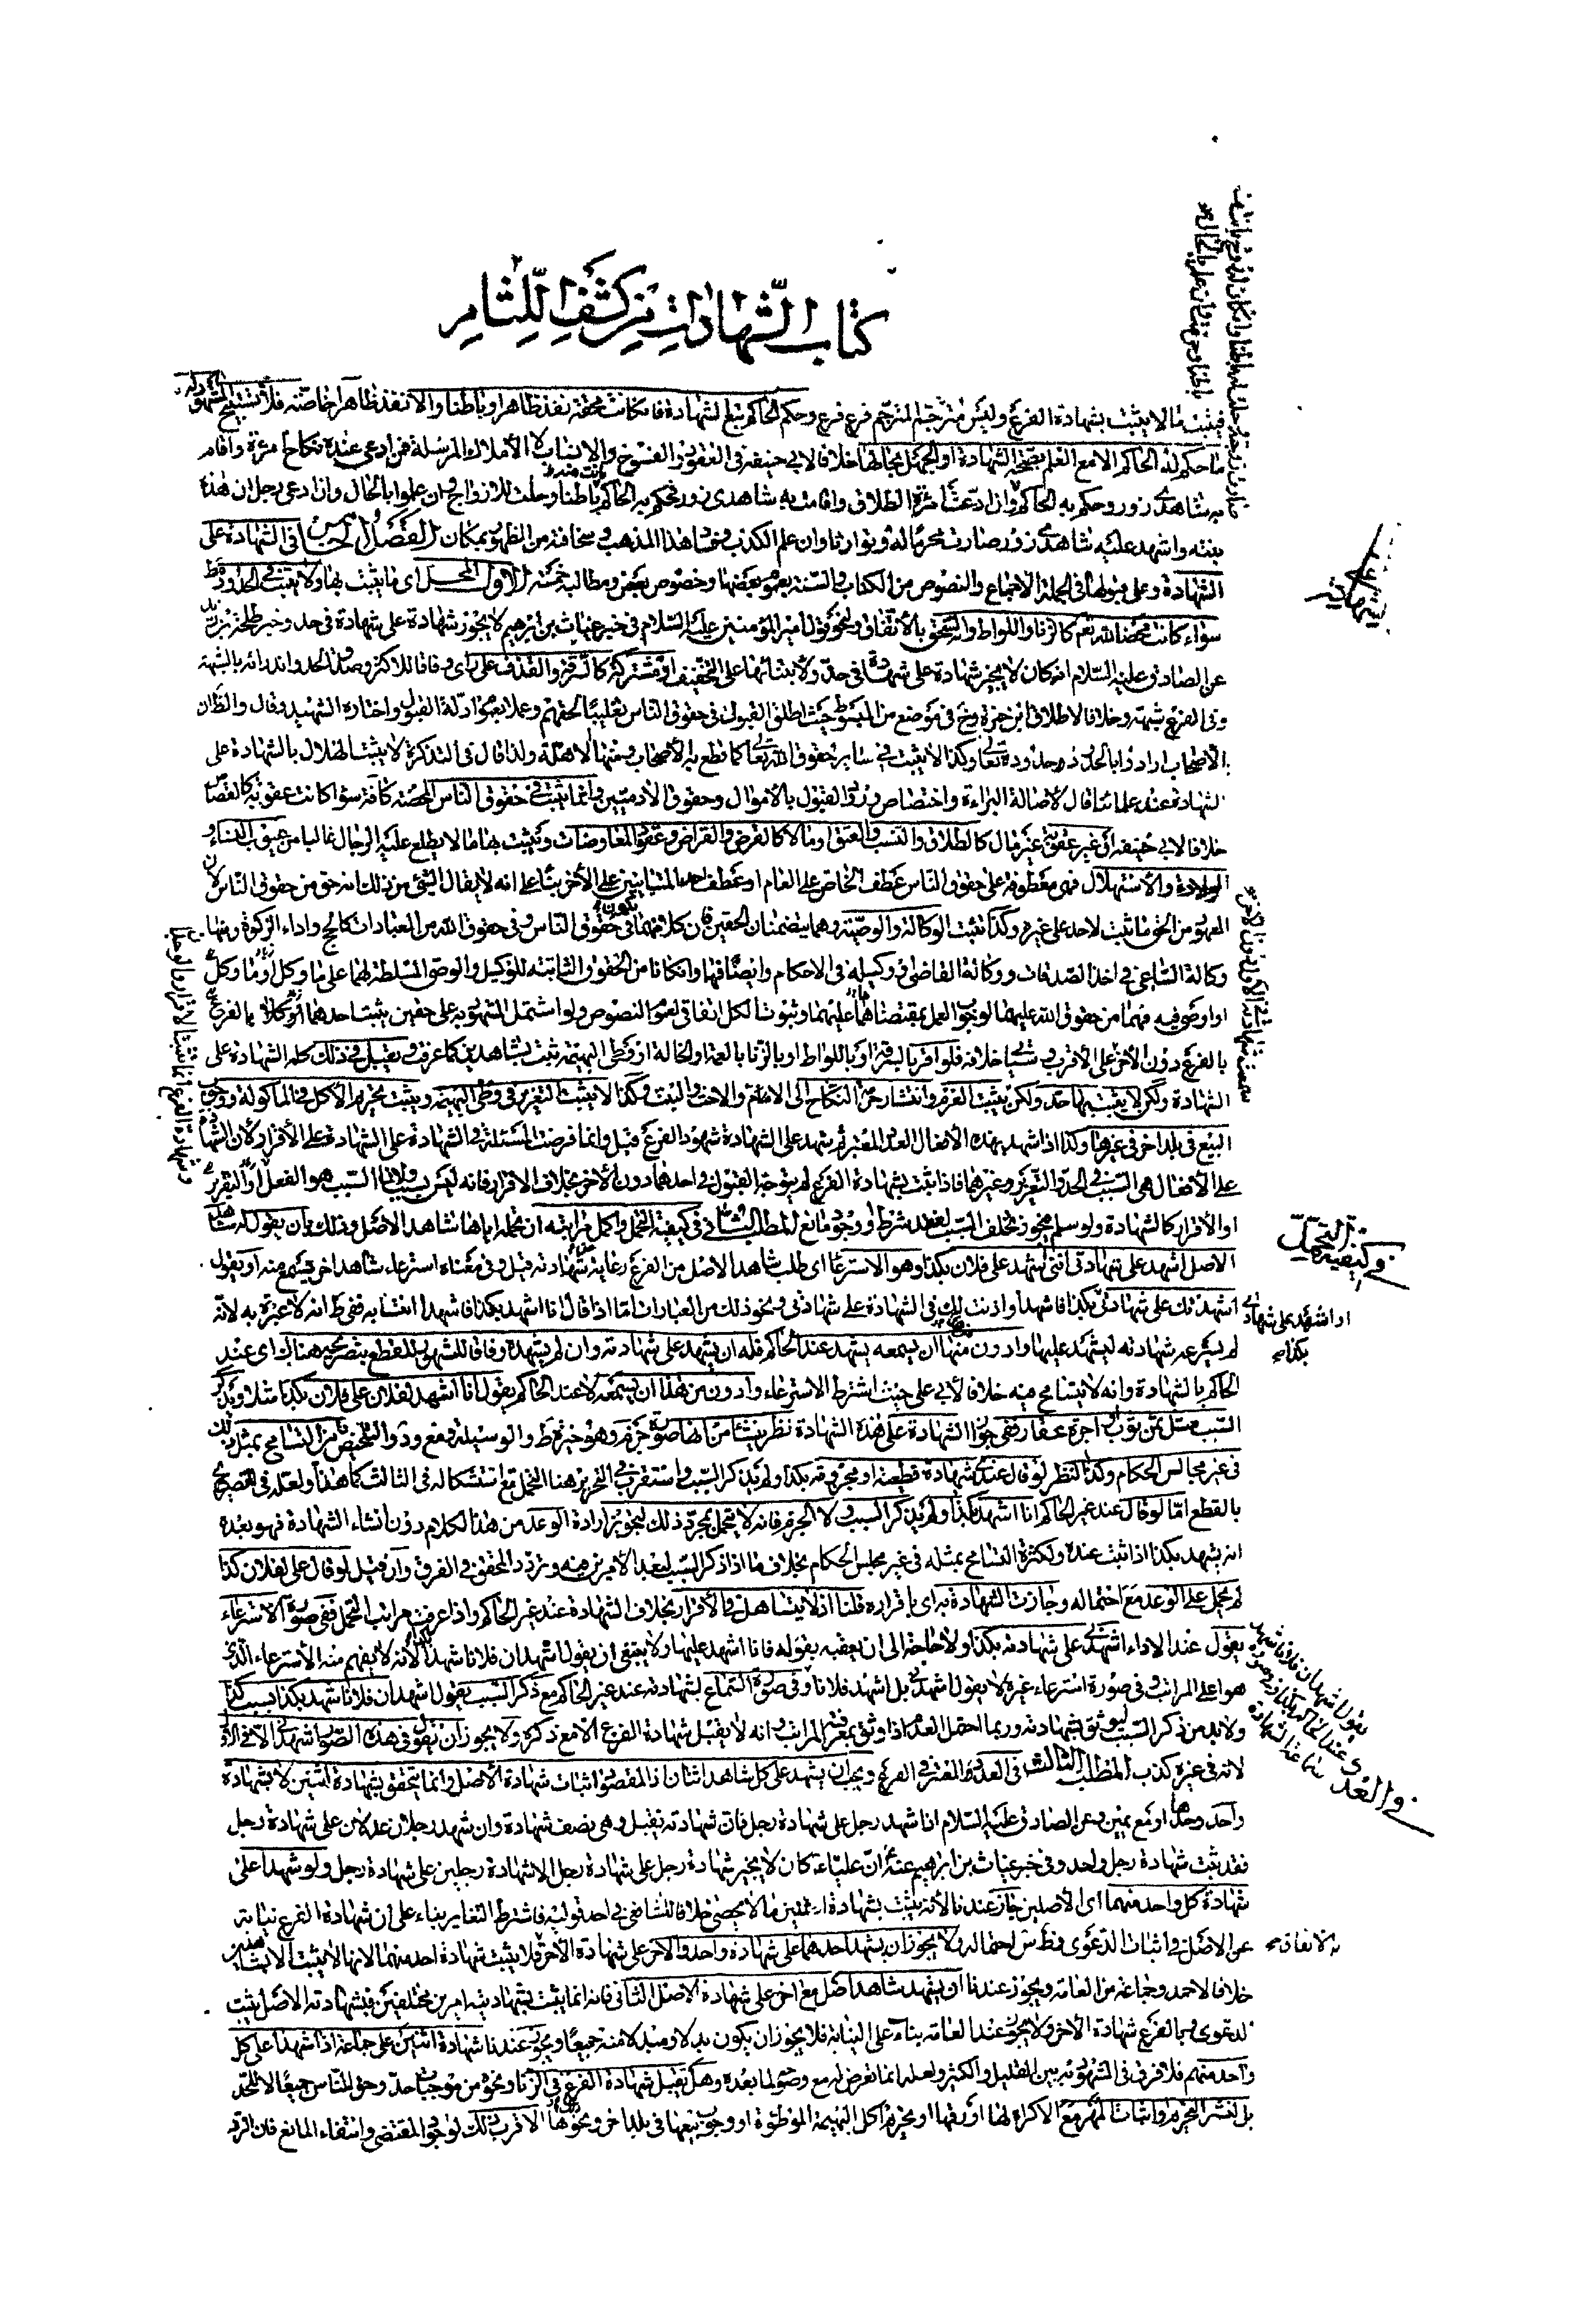 كتاب الشهادات من كشف اللثام
فيثبت ما لا يثبت بشهادة الفرع وليس مترجم المترجم فرع فرع وحكم الحاكم تبع للشهادة فان كانت محقة نفذ ظاهرا وباطنا والا نفذ ظاهرا خاصة فلا يستبيح المشهود له
ما حكم له الحاكم الا مع العلم بصحة الشهادة او الجهل بحالها خلافا لابي حنيفة في العقود والفسوخ والانساب لا الاملاك المرسلة فمن ادعى عنده نكاح امرءة واقام
به شاهدي زور وحكم به الحاكم وان ادعت امرئة الطلاق واقامت به شاهدي زور فحكم به الحاكم بانت منه باطنا وحلت للازواج وان علموا بالحال وان ادعى رجل ان هذه
بنته واشهد عليه شاهدي زور صارت محرما له وتوارثا وان علم الكذب وفساد هذا المذهب وسخافته من الظهور بمكان الفصل الخامس في الشهادة على
الشهادة وعلى قبولها في الجملة الاجماع والنصوص من الكتاب والسنة بعموم بعضها وخصوص بعض ومطالبه خمسة الاول المحل اي ما يثبت بها ولا يثبت في الحدود
سواء كانت محضا لله تعالى كالزنا واللواط والسحق بالاتفاق ولنحو قول امير المؤمنين عليه السلام في خبر غياث بن ابرهيم لا يجوز شهادة على شهادة في حد وخبر طلحة بن زيد
عن الصادق عليه السلام انه كان لا يجيز شهادة على شهادة في حد ولابتنائها على التخفيف او مشتركة كالسرقة والقذف على راي وفاقا للاكثر وصدق الحد واندرائه بالشبهة
وفي الفرع شبهة وخلافا لاطلاق ابن حمزة وخ في موضع من المبسوط حيث اطلق القبول في حقوق الناس تغليبا لحقهم وعملا بعموم ادلة القبول واختاره الشهيد وقال والظان
الاصحاب ارادوا بالحد حدوده تعالى وكذا لا يثبت في ساير حقوق الله تعالى كما قطع به الاصحاب ومنها الاهلة ولذا قال في التذكرة لا يثبت الهلال بالشهادة على
الشهادة عند علمائنا قال لاصالة البراءة واختصاص ورود القبول بالاموال وحقوق الادميين وانما يثبت في حقوق الناس المحضة كافة سواء كانت عقوبة كالقصاص
خلافا لابي حنيفة او غير عقوبة غير مال كالطلاق والنسب والعتق او مالا كالقرض والقراض وعقود المعاوضات وتثبت بها ما لا يطلع عليه الرجال غالبا من عيوب النساء و
الولادة والاستهلال فهي معطوفة على حقوق الناس عطف الخاص على العام او عطف احد المتباينين على الاخر بناء على انه لا يقال لشئ من ذلك انه حق من حقوق الناس لان
المفهوم من الحق ما ثبت لاحد على غيره وكذا تثبت الوكالة والوصية وهما يتضمنان الحقين فان كلا منهما يكون في حقوق الناس وفي حقوق الله من العبادات كالحج واداء الزكوة ومنها
وكالة الساعي في اخذ الصدقات ووكالة القاضي وكيله في الاحكام وايضا فهما وان كانا من الحقوق الثابتة للوكيل والوصي المسلطة لهما على ما وكل او ما وكل
او اوصى فيه فهما من حقوق الله عليهما لوجوب العمل بمقتضاهما عليهما وثبوت الكل اتفاقي لعموم النصوص ولو اشتمل المشهود به على حقين يثبت احدهما بالفرع
بالفرع دون الاخر على الاقرب وسيأتي خلافه فلو اقر بالسرقة او باللواط او بالزنا بالعمة او الخالة او وطي البهيمة ثبت بشاهدين كما عرفت ويقبل في ذلك كله الشهادة على
الشهادة ولكن لا يثبت بها حد ولكن يثبت الغرم وانتشار حرمة النكاح الى الام والاخت والبنت وكذا لا يثبت التعزير في وطي البهيمة ويثبت تحريم الاكل في المأكولة ووجوب
البيع في بلد اخر في غيرها وكذا اذا شهد بهذه الافعال العدد المعتبر ثم شهد على الشهادة شهود الفرع قبل وانما فرضت المسئلة في الشهادة على الشهادة على الاقرار لان الشهادة
على الافعال هي السبب في الحد والتعزير وغيرهما فاذا ثبت بشهادة الفرع لم يتوجه القبول في احدهما دون الاخر بخلاف الاقرار فانه ليس بسبب ولانا السبب هو الفعل او التقرير
او الاقرار كالشهادة ولو سلم فيجوز تخلف السبب لفقد شرط او وجود مانع المطلب الثاني في كيفية التحمل واكمل مراتبه ان يحمله اياها شاهد الاصل وذلك بان يقول له شاهد
الاصل اشهد على شهادتي انني اشهد على فلان بكذا وهو الاسترعاء اي طلب شاهد الاصل من الفرع رعاية شهادته قيل وفي معناه استرعاء شاهدا اخر فيسمع منه او يقول
اشهدتك على شهادتي بكذا فاشهد او اذنت لك في الشهادة على شهادتي ونحو ذلك من العبارات اما اذا قال انا اشهد بكذا فاشهد انت به ففي ط انه لا عبرة به لانه
لم يسترعه شهادته ليشهد عليها وادون منها ان يسمعه يشهد عند الحاكم فله ان يشهد على شهادته وان لم يشهده وفاقا للمشهور للقطع بتصريحه هناك اي عند
الحاكم بالشهادة وانه لا يتسامح منه خلافا لابي علي حيث اشترط الاسترعاء وادون من هذا ان يسمعه لا عند الحاكم يقول انا اشهد لفلان على فلان بكذا مثلا ويذكر
السبب مثل ثمن ثوب او اجرة عقار ففي جواز الشهادة على هذه الشهادة نظر ينشأ من انها صورة جزم وهو خيرة ط والوسيلة وقع ود والتلخيص ومن التسامح بمثل ذلك
في غير مجالس الحكام وكذا النظر لو قال عندي شهادة قطعية او مجزومة بكذا ولم يذكر السبب واستقرب في التحرير هنا التحمل مع استشكاله في الثالث كما هنا ولعله في التصريح
بالقطع اما لو قال عند غير الحاكم انا اشهد بكذا ولم يذكر السبب ولا الجزم فانه لا يتحمل بمجرد ذلك لتجويز ارادة الوعد من هذا الكلام دون انشاء الشهادة فهو بعده
انه يشهد بكذا اذا ثبت عنده ولكثرة التسامح بمثله في غير مجلس الحكام بخلاف ما اذا ذكر السبب لبعد الامرين منه وتردد المحقق في الفرق وان قيل لو قال علي لفلان كذا
لم يحمل على الوعد مع احتماله وجازت الشهادة به اي باقراره قلنا اذ لا يتساهل في الاقرار بخلاف الشهادة عند غير الحاكم واذا عرفت مراتب التحمل ففي صورة الاسترعاء
يقول عند الاداء اشهدني على شهادته بكذا ولا حاجة الى ان يعقبه بقوله فانا اشهد عليها ولا يكفي ان يقول اشهد ان فلانا شهد بكذا لانه لا يفهم منه الاسترعاء الذي
هو اعلى المراتب وفي صورة استرعاء غيره لا يقول اشهدني بل اشهد فلانا وفي صورة السماع لشهادته عند غير الحاكم مع ذكر السبب يقول اشهد ان فلانا شهد بكذا بسبب كذا
ولا بد من ذكر السبب ليوثق بشهادته وربما احتمل العدم اذا وثق بمعرفته المراتب وانه لا يقبل شهادة الفرع الا مع ذكره ولا يجوز ان يقول في هذه الصور اشهدني الا في الاولى
لانه في غيره كذب المطلب الثالث في العدد المعتبر في الفرع ويجب ان يشهد على كل شاهد اثنان اذ المقصود اثبات شهادة الاصل وانما يتحقق بشهادة اثنين لا بشهادة
واحد وحدها او مع يمين وعن الصادق عليه السلام اذا شهد رجل على شهادة رجل فان شهادته تقبل وهي نصف شهادة وان شهد رجلان عدلان على شهادة رجل
فقد ثبت شهادة رجل واحد وفي خبر غياث بن ابراهيم عنه ان عليا كان لا يجيز شهادة رجل على شهادة رجل الا شهادة رجلين على شهادة رجل ولو شهدا على
شهادة كل واحد منهما اي الاصلين جاز عندنا لانه يثبت بشهادة اثنين ما لا يحصى خلافا للشافعي في احد قوليه فاشترط التغاير بناء على ان شهادة الفرع نيابة
عن الاصل في اثبات الدعوى ولا يجوز ان يشهد احدهما على شهادة واحد والاخر على شهادة الاخر فلا يثبت شهادة احد منهما لانها لا يثبت الا بشاهدين
خلافا لاحمد وجماعة من العامة ويجوز عندنا ان يشهد شاهد اصل مع اخر على شهادة الاصل الثاني فانه انما يثبت بشهادتيه امرين مختلفين فبشهادته الاصل يثبت
الدعوى وبالفرع شهادة الاخر ولا يجوز عند العامة بناء على النيابة فلا يجوز ان يكون بدلا ومبدلا منه جميعا ويجوز عندنا شهادة اثنين على جماعة اذا شهدا على كل
واحد منهم فلا فرق في المشهود به بين القليل والكثير ولعله انما تعرض له مع وضوحه لما بعده وهل تقبل شهادة الفرع في الزنا ونحوه من موجبات حد وحق للناس جميعا لا للحد
بل لنشر التحريم واثبات المهر مع الاكراه لها او رقها او تحريم اكل البهيمة الموطوءة او وجوب بيعها في بلد اخر ونحوها الاقرب ذلك لوجود المقتضي وانتفاء المانع فان الرد
على
شهادته
في كيفية التحمل
او اشهد على شهادتي
بكذا
في العدد